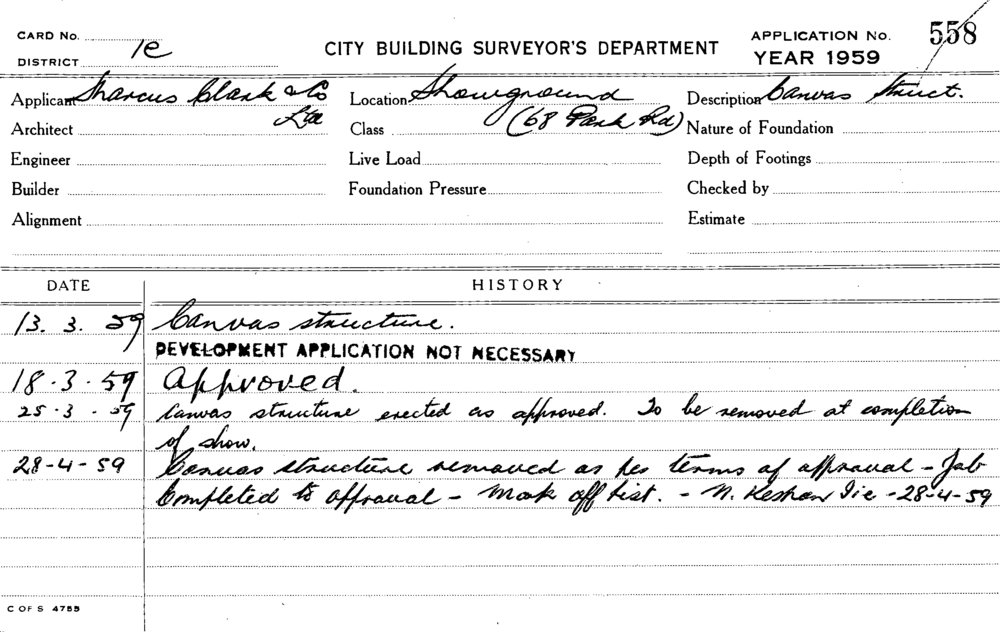 CARD No.
DISTRICT 1e
CITY BUILDING SURVEYOR'S DEPARTMENT
APPLICATION No. 558
YEAR 1959
Applicant Marcus Clark & Co Ltd
Location Showground (68 Park Rd)
Description Canvas Struct.
Architect
Class
Nature of Foundation
Engineer
Live Load
Depth of Footings
Builder
Foundation Pressure
Checked by
Alignment
Estimate
DATE HISTORY
13.3.59 Canvas structure.
DEVELOPMENT APPLICATION NOT NECESSARY
18.3.59 Approved.
25.3.59 Canvas structure erected as approved. To be removed at completion
of show.
28-4-59 Canvas structure removed as per terms of approval - Job
Completed to approval - Mark off list. - N. 28-4-59
C OF S 4755